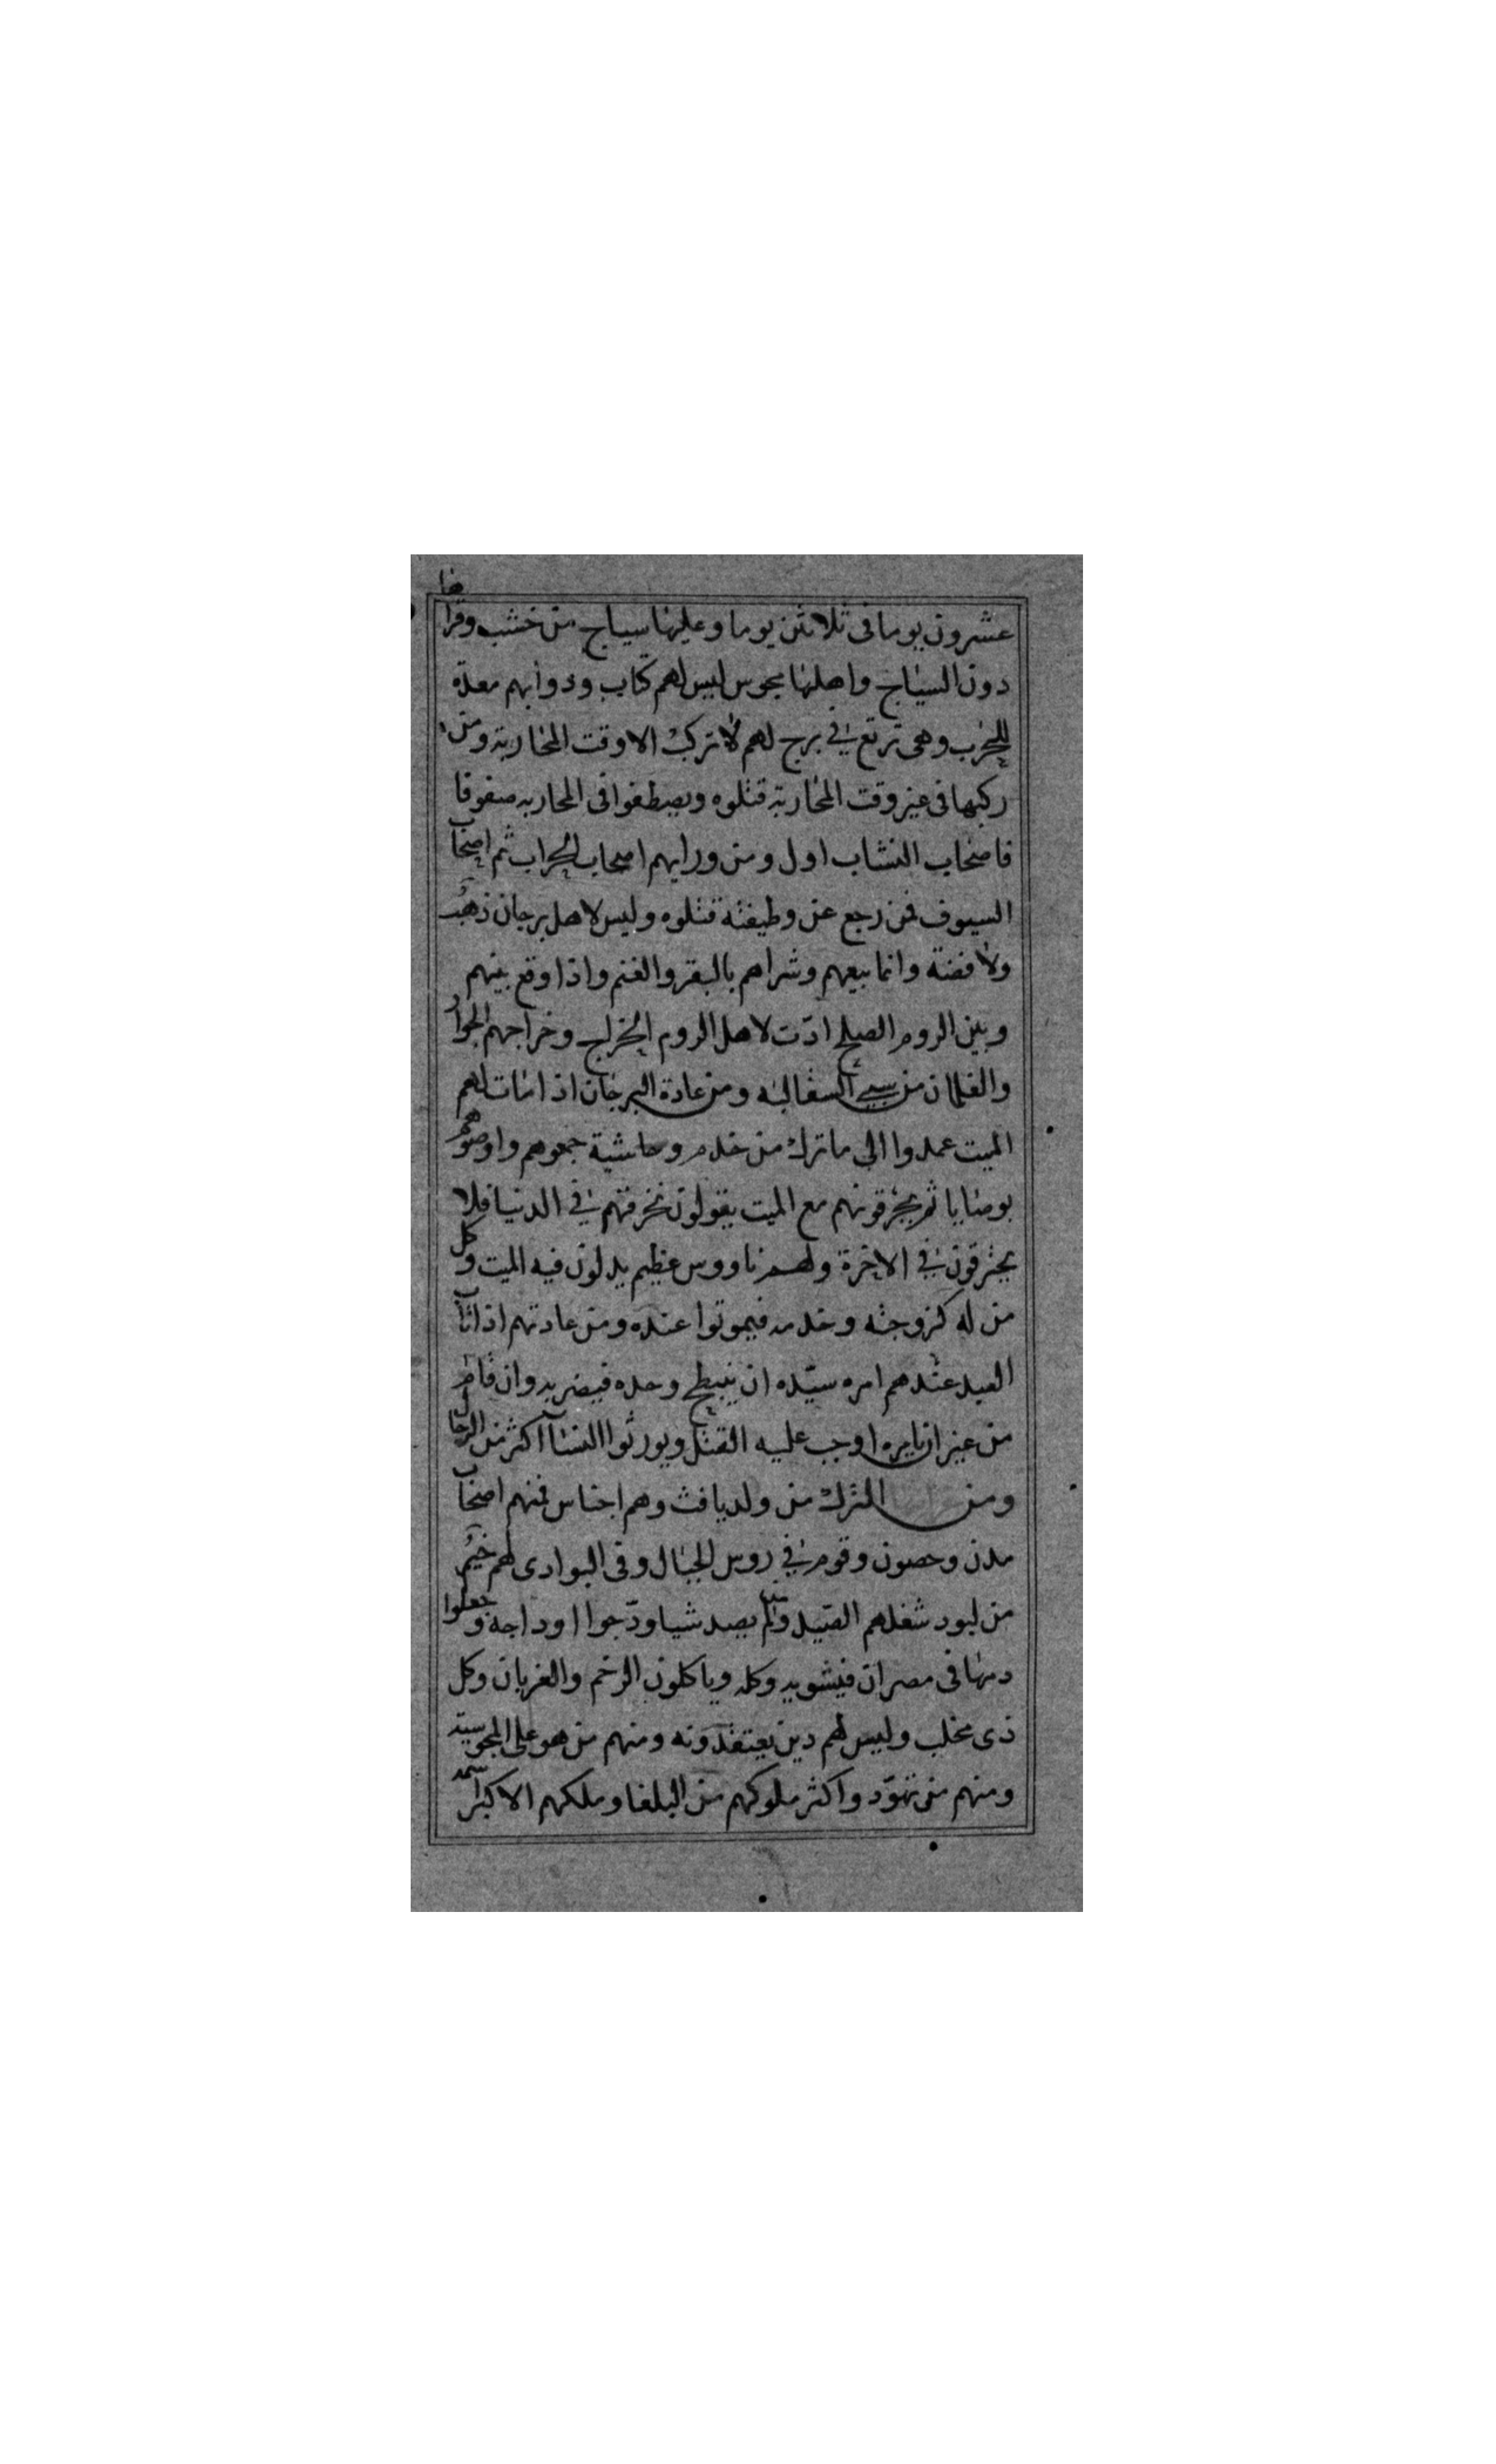 عشرون يوما فى ثلاثين يوما وعليها سياج من خشب وقراها
دون السياج واهلها مجوس ليس لهم كتاب ودوابهم معدة
للحرب وهى ترتع في برج لهم لا تركب الا وقت المحاربة ومن
ركبها فى غير وقت المحاربة قتلوه ويصطفوا فى المحاربه صفوفا
فاصحاب النشاب اول ومن ورايهم اصحاب الحراب ثم اصحاب
السيوف فمن رجع عن وظيفته قتلوه وليس لاهل برجان ذهب
ولا فضة وانما بيعهم وشراهم بالبقر والغنم واذا وقع بينهم
وبين الروم الصلح ادّت لاهل الروم الخراج وخراجهم الجوار
والغلمان من سبي السقالبه ومن عادة البرجان اذا مات لهم
الميت عمدوا الى ما ترك من خدم وحاشية جمعوهم واوصوهم
بوصايا ثم يحرقونهم مع الميت يقولون نحرقهم في الدنيا فلا
يحترقون في الاخرة ولهم ناووس عظيم يدلون فيه الميت وكل
من له كزوجته وخدمه فيموتوا عنده ومن عادتهم اذا
العبد عندهم امره سيّده ان ينبطح وحده فيضربه وان قام
من غير ان يامره اوجب عليه القتل ويورثوا النسآ اكثر من الرجال
ومن الترك من ولد يافث وهم اجناس فمنهم اصحاب
مدن وحصون وقوم في روس الجبال وفى البوادى لهم خيم
من لبود شغلهم الصّيد ولم يصد شيا ودّجوا اوداجه وجعلوا
دمها فى مصران فيشويه وكله وياكلون الرخم والغربان وكل
ذى مخلب وليس لهم دين يعتقدونه ومنهم من هو على المجوسية
ومنهم من تهوّد واكثر ملوكهم من البلغا وملكهم الاكبر